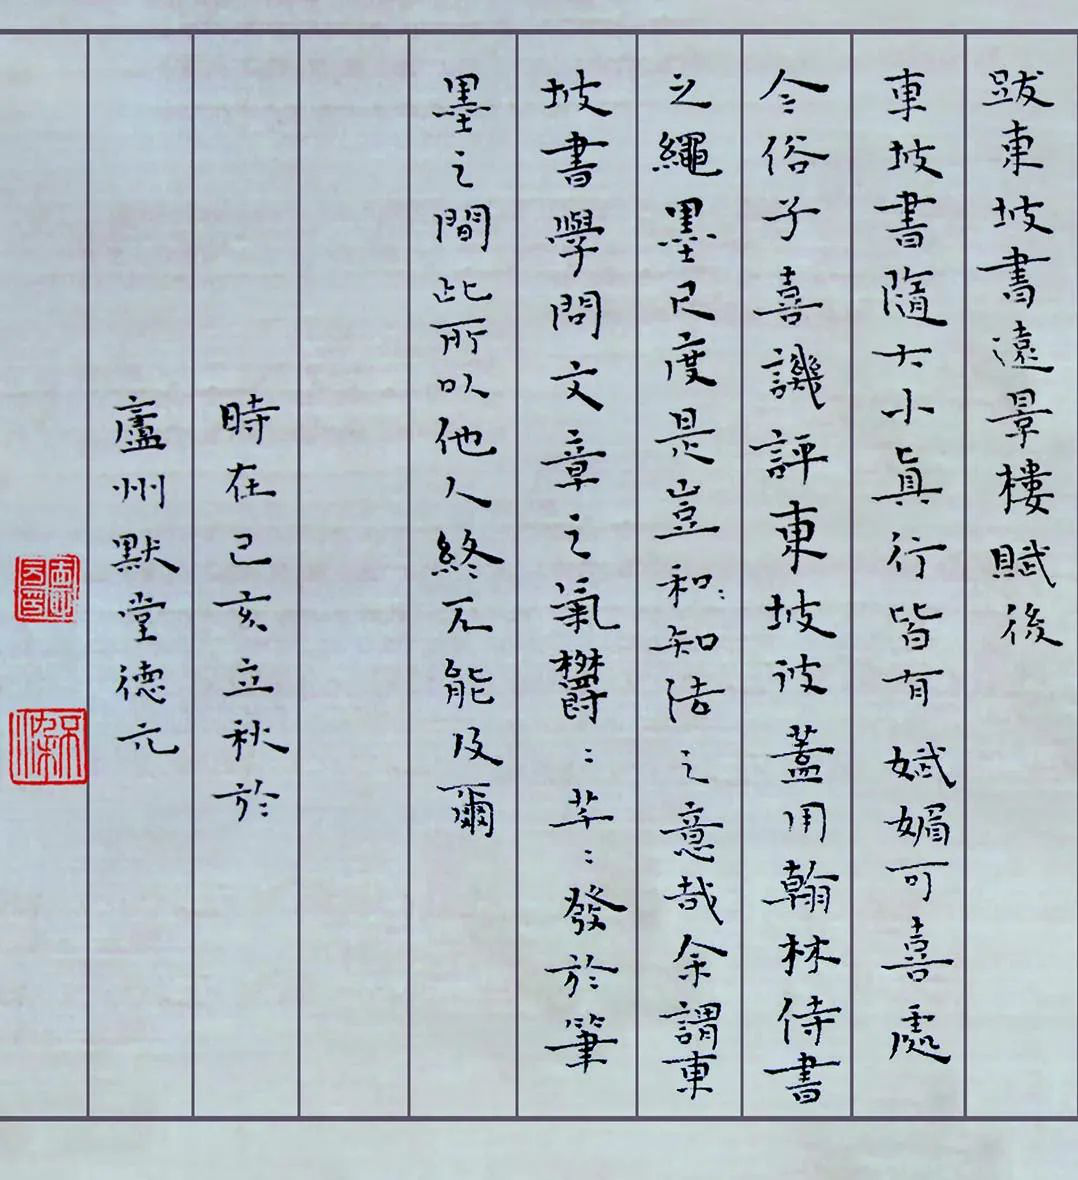 跋東坡書遠景樓賦後
東坡書隨大小真行皆有娬媚可喜處
今俗子喜譏評東坡彼蓋用翰林侍書
之繩墨尺度是豈和:知法之意哉余謂東
坡書學問文章之氣鬱:芊:發於筆
墨之間此所以他人終不能及爾
時在己亥立秋於
廬州默堂德元